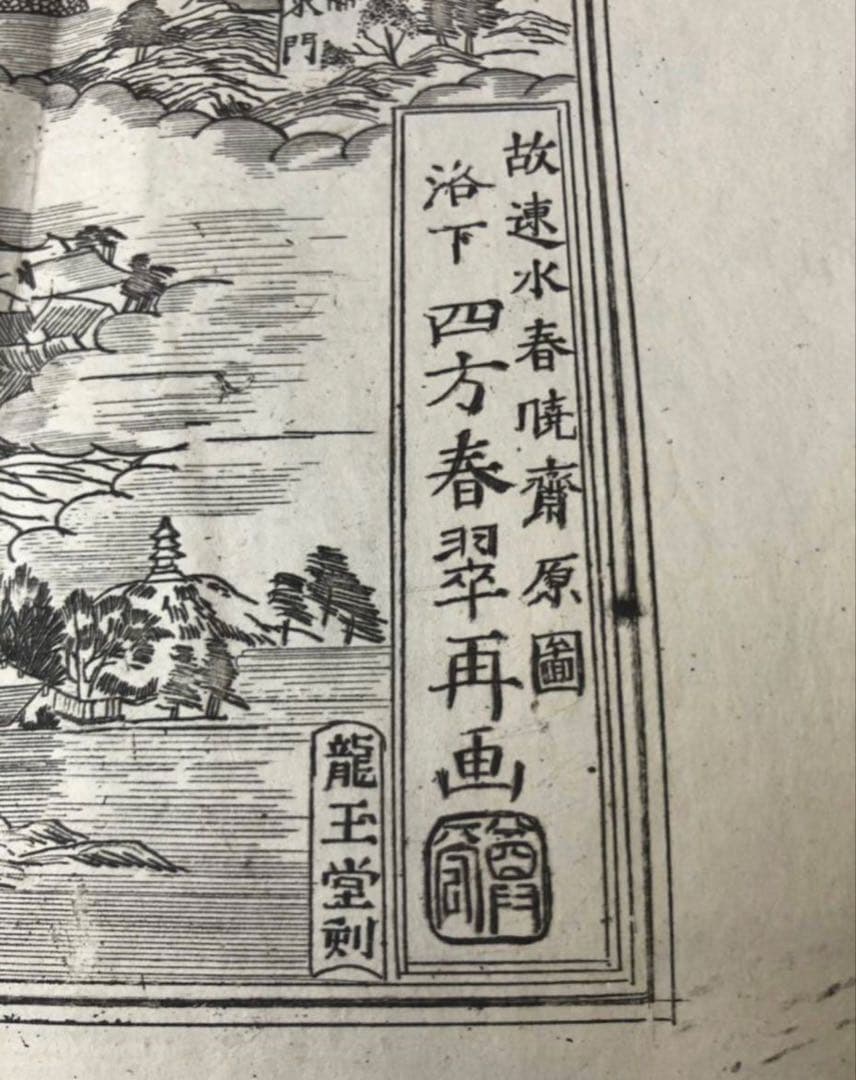 東門
故速水春暁齋原圖
洛下四方春翠再画
龍玉堂刻